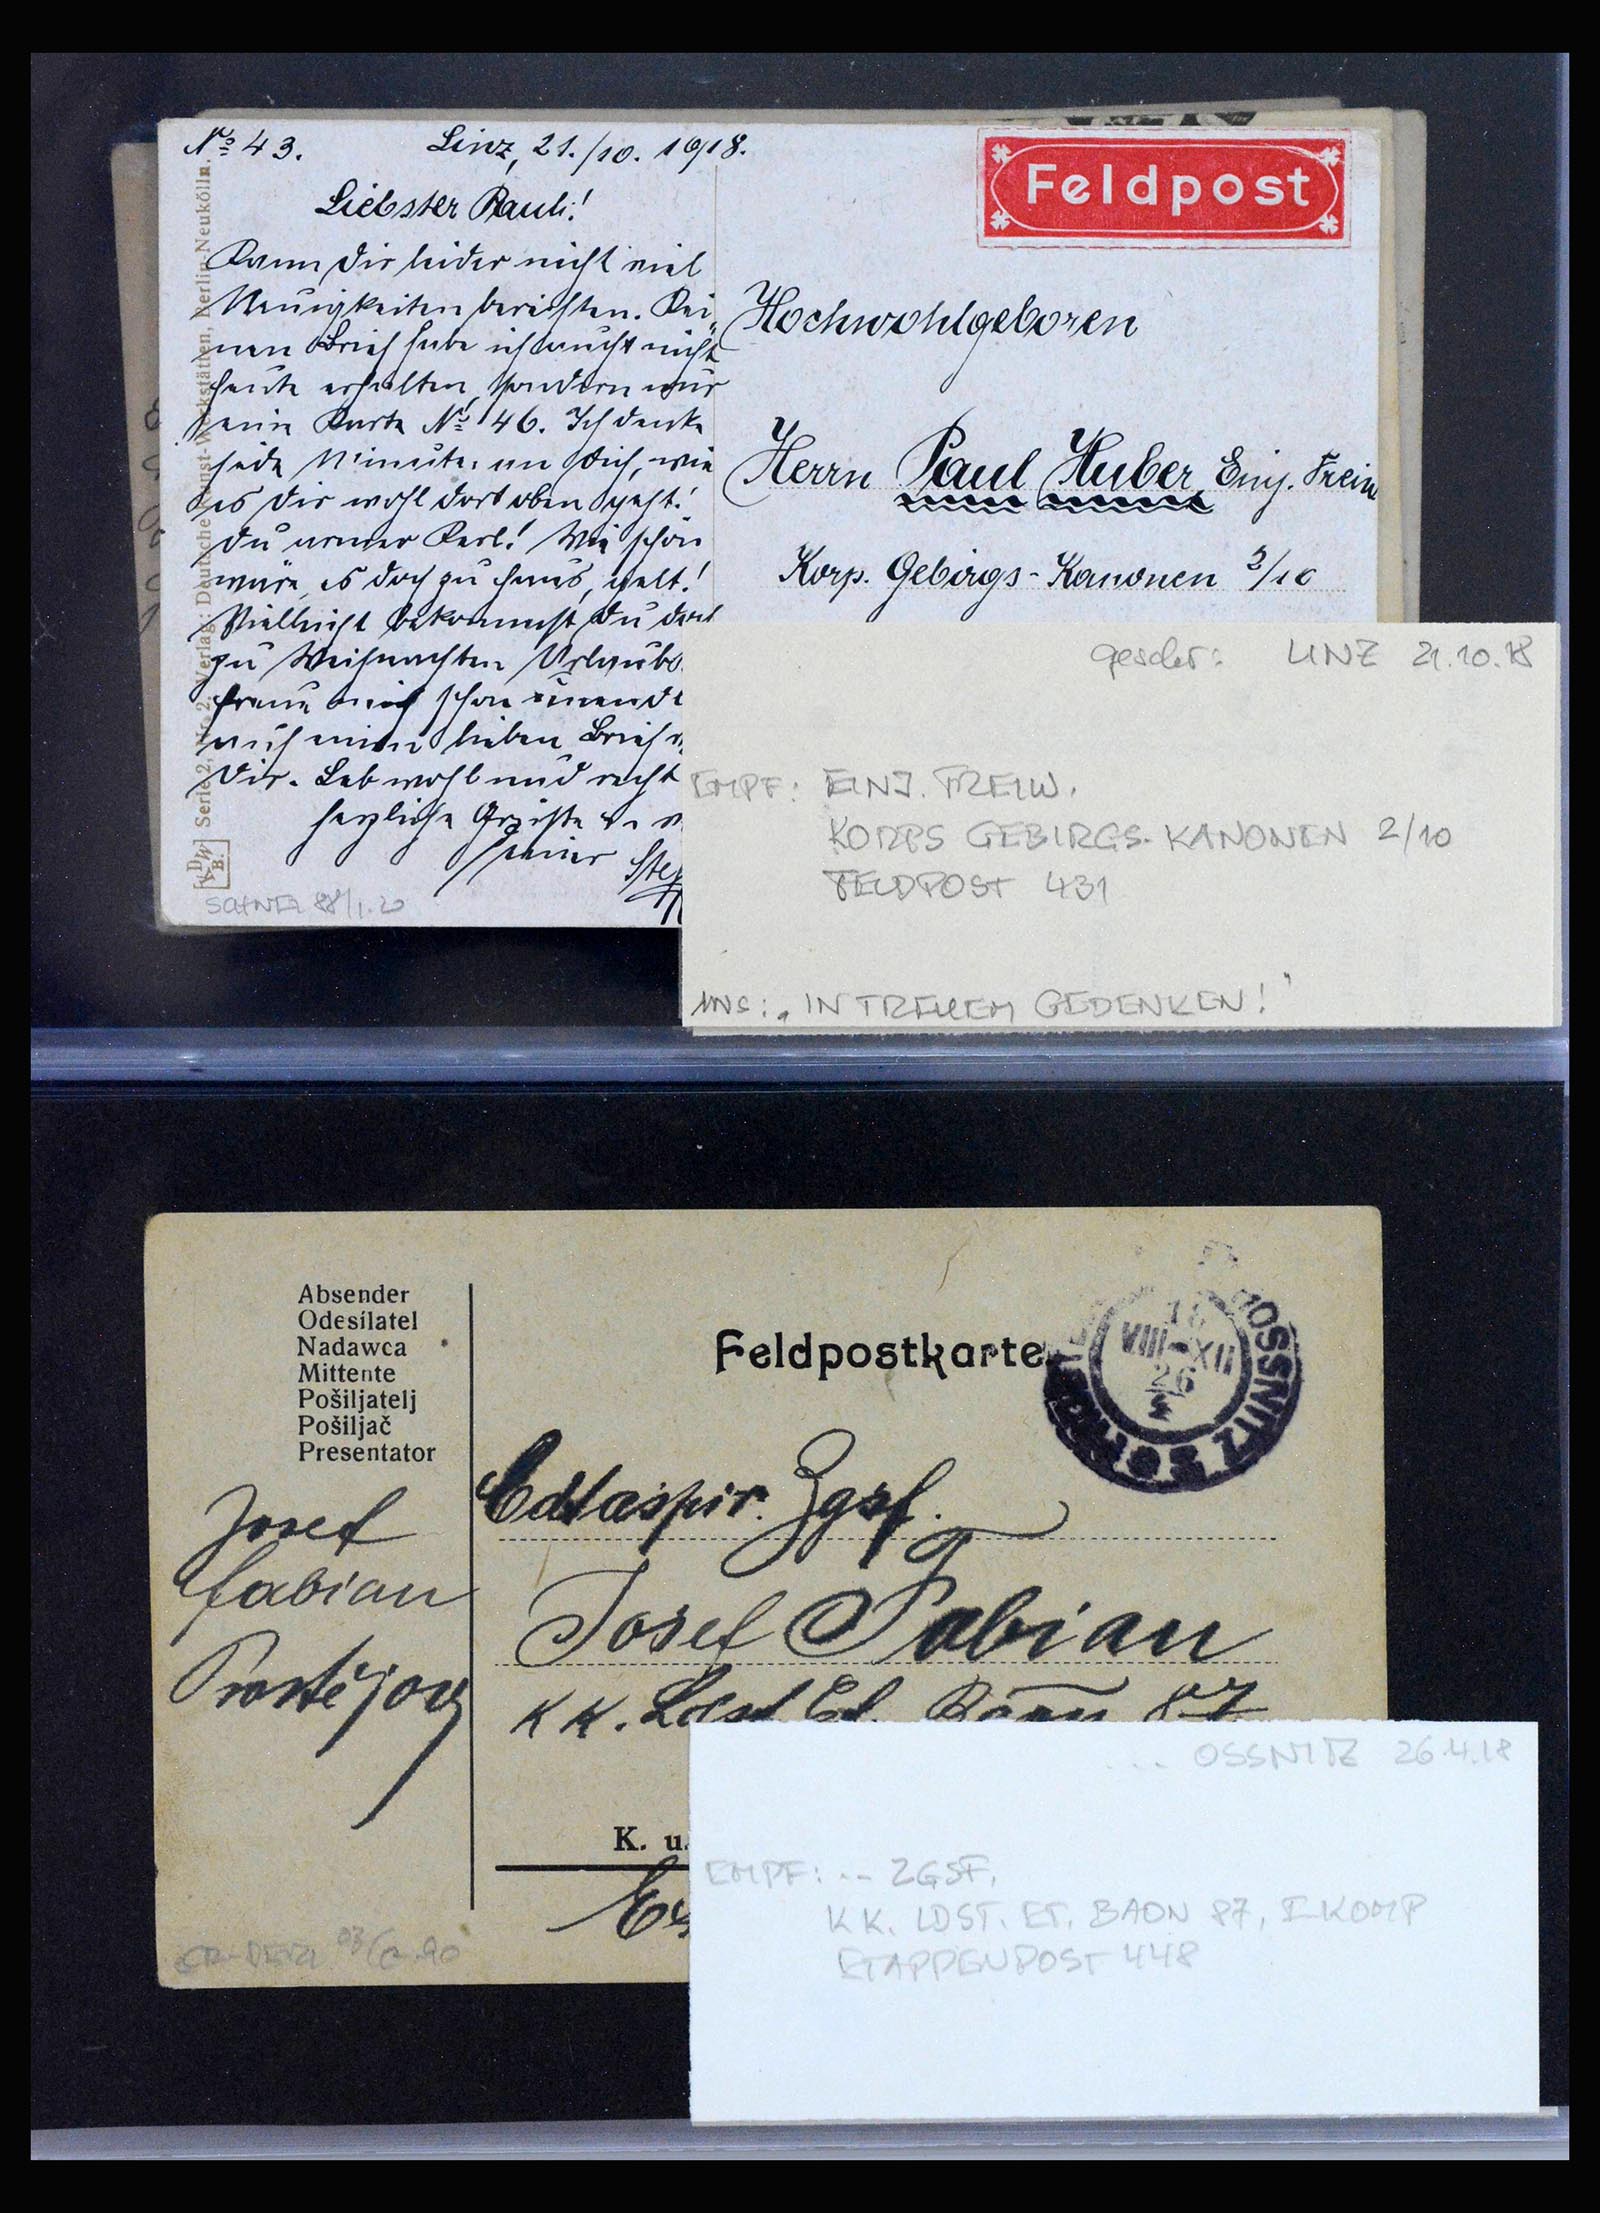 Nº 43. Linz, 21./10. 1918.
Liebster Pauli!
Kann Dir leider nicht viel
Neuigkeiten berichten. Kei-
nen Brief habe ich auch nicht
heute erhalten, sondern nur
eine Karte Nº 46. Ich denke
jede Minute an Dich, wie
es Dir wohl dort oben geht!
Du armer Kerl! Wie schön
wäre es doch zu Haus, gelt!
Vielleicht bekommst Du
zu Weihnachten Urlaub.
freue mich schon
auf einen lieben Brief
Dir. Leb wohl und recht
herzliche Grüsse
Deiner
Serie 2, Nr. 2. Verlag: Deutsche Kunst-Werkstätten, Berlin-Neukölln.
Feldpost
Hochwohlgeboren
Herrn Paul Huber, Einj. Freiw
Korp. Gebirgs-Kanonen 2/10
geschr: LINZ 21.10.18
EMPF: EINJ. FREIW.
KORPS GEBIRGS-KANONEN 2/10
FELDPOST 431
INS: „IN TREUEM GEDENKEN!"
Absender
Odesílatel
Nadawca
Mittente
Pošiljatelj
Pošiljač
Presentator
Josef
Fabian
Prostějov
Feldpostkarte
VIII-XII
26
OSSNITZ
Zgsf.
Josef Fabian
K K. Ldst Et. Baon 87
K. u.
... OSSNITZ 26.4.18
EMPF: ... ZGSF,
K K. LDST. ET. BAON 87, I KOMP
ETAPPENPOST 448